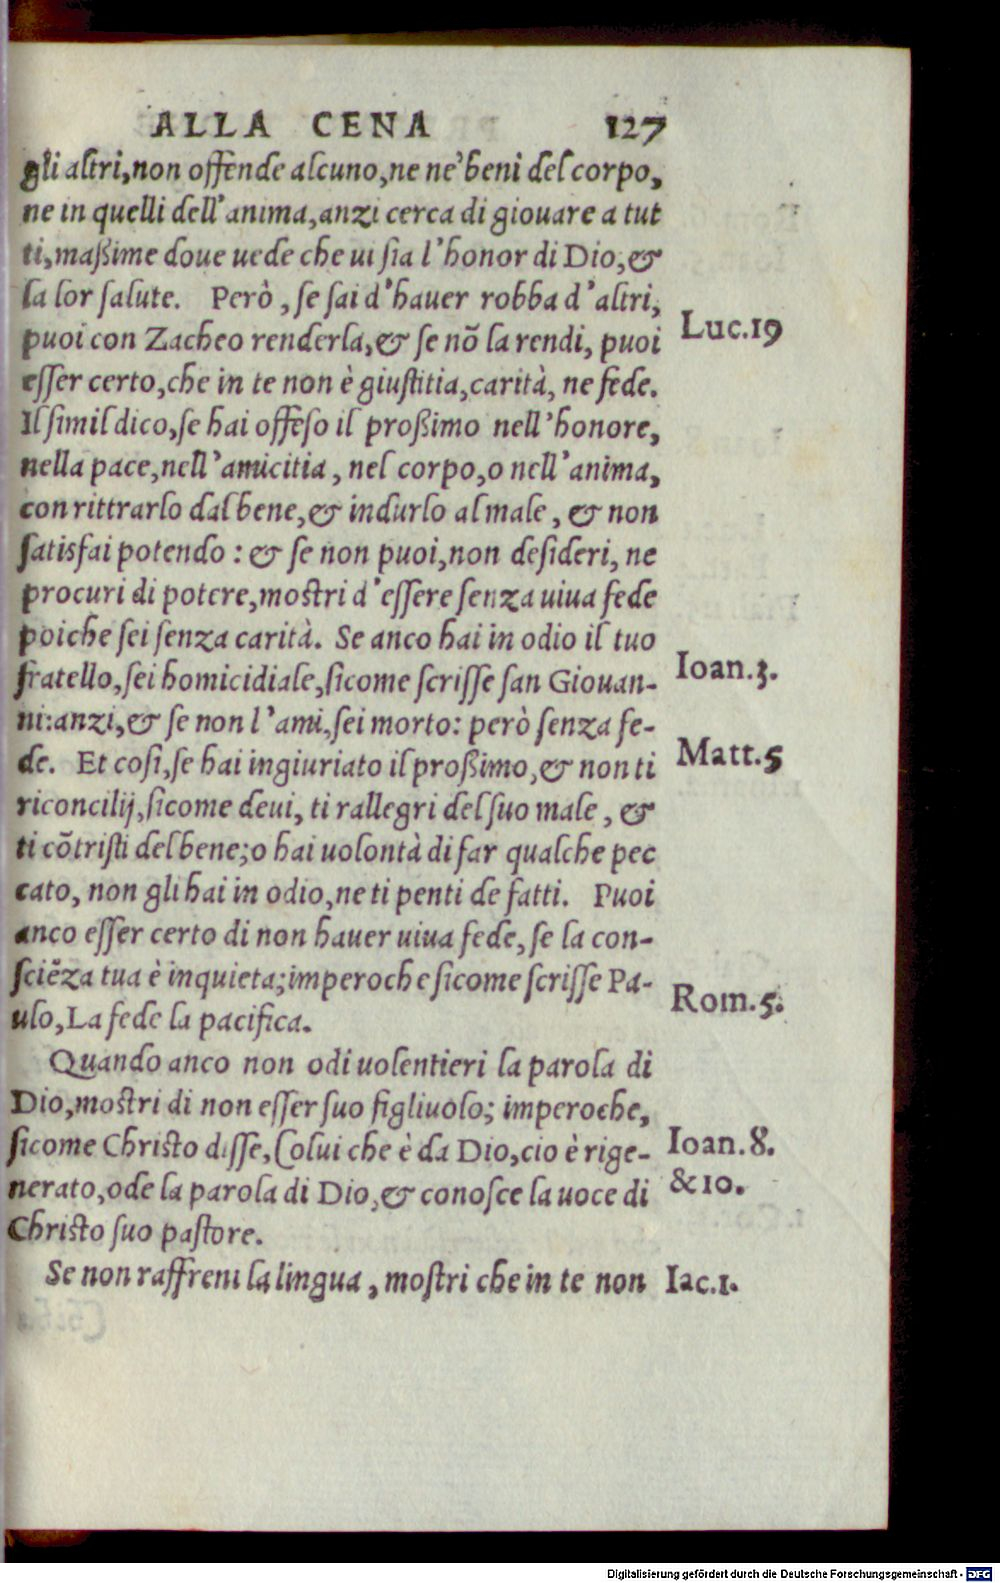 ALLA CENA 127
gli altri, non offende alcuno, ne ne' beni del corpo,
ne in quelli dell'anima, anzi cerca di giouare a tut
ti, maßime doue uede che ui sia l'honor di Dio, &
la lor salute. Però, se sai d'hauer robba d'altri,
puoi con Zacheo renderla, & se nõ la rendi, puoi
Luc.19
esser certo, che in te non è giustitia, carità, ne fede.
Il simil dico, se hai offeso il proßimo nell'honore,
nella pace, nell'amicitia, nel corpo, o nell'anima,
con rittrarlo dal bene, & indurlo al male, & non
satisfai potendo: & se non puoi, non desideri, ne
procuri di potere, mostri d'essere senza uiua fede
poiche sei senza carità. Se anco hai in odio il tuo
fratello, sei homicidiale, sicome scrisse san Giouan-
Ioan.3.
ni: anzi, & se non l'ami, sei morto: però senza fe-
de. Et cosi, se hai ingiuriato il proßimo, & non ti
Matt.5
riconcilij, sicome deui, ti rallegri del suo male, &
ti cõtristi del bene; o hai uolontà di far qualche pec
cato, non gli hai in odio, ne ti penti de fatti. Puoi
anco esser certo di non hauer uiua fede, se la con-
sciẽza tua è inquieta; imperoche sicome scrisse Pa-
ulo, La fede la pacifica.
Rom.5.
Quando anco non odi uolentieri la parola di
Dio, mostri di non esser suo figliuolo; imperoche,
sicome Christo disse, Colui che è da Dio, cio è rige-
Ioan.8.
nerato, ode la parola di Dio, & conosce la uoce di
&10.
Christo suo pastore.
Se non raffreni la lingua, mostri che in te non
Iac.1.
Digitalisierung gefördert durch die Deutsche Forschungsgemeinschaft - DFG